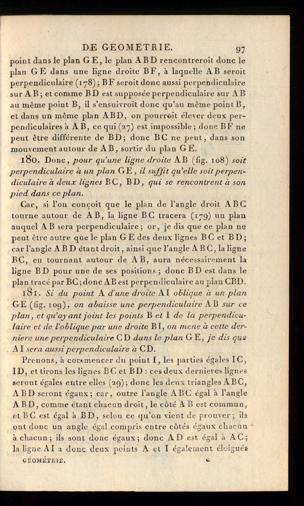 DE GEOMETRIE. 97
point dans le plan GE, le plan ABD rencontreroit donc le
plan GE dans une ligne droite BF, à laquelle AB seroit
perpendiculaire (178); BF seroit donc aussi perpendiculaire
sur AB; et comme BD est supposée perpendiculaire sur AB
au même point B, il s'ensuivroit donc qu'au même point B,
et dans un même plan ABD, on pourroit élever deux per-
pendiculaires à AB, ce qui (27) est impossible; donc BF ne
peut être différente de BD; donc BC ne peut, dans son
mouvement autour de AB, sortir du plan GE.
180. Donc, pour qu'une ligne droite AB (fig. 108) soit
perpendiculaire à un plan GE, il suffit qu'elle soit perpen-
diculaire à deux lignes BC, BD, qui se rencontrent à son
pied dans ce plan.
Car, si l'on conçoit que le plan de l'angle droit ABC
tourne autour de AB, la ligne BC tracera (179) un plan
auquel AB sera perpendiculaire; or, je dis que ce plan ne
peut être autre que le plan GE des deux lignes BC et BD;
car l'angle ABD étant droit, ainsi que l'angle ABC, la ligne
BC, en tournant autour de AB, aura nécessairement la
ligne BD pour une de ses positions; donc BD est dans le
plan tracé par BC; donc AB est perpendiculaire au plan CBD.
181. Si du point A d'une droite AI oblique à un plan
GE (fig. 109), on abaisse une perpendiculaire AB sur ce
plan, et qu'ayant joint les points B et I de la perpendicu-
laire et de l'oblique par une droite BI, on mene à cette der-
niere une perpendiculaire CD dans le plan GE, je dis que
AI sera aussi perpendiculaire à CD.
Prenons, à commencer du point I, les parties égales IC,
ID, et tirons les lignes BC et BD: ces deux dernieres lignes
seront égales entre elles (29); donc les deux triangles ABC,
ABD seront égaux; car, outre l'angle ABC égal à l'angle
ABD, comme étant chacun droit, le côté AB est commun,
et BC est égal à BD, selon ce qu'on vient de prouver; ils
ont donc un angle égal compris entre côtés égaux chacun
à chacun; ils sont donc égaux; donc AD est égal à AC;
la ligne AI a donc deux points A et I également éloignés
GÉOMÉTRIE.